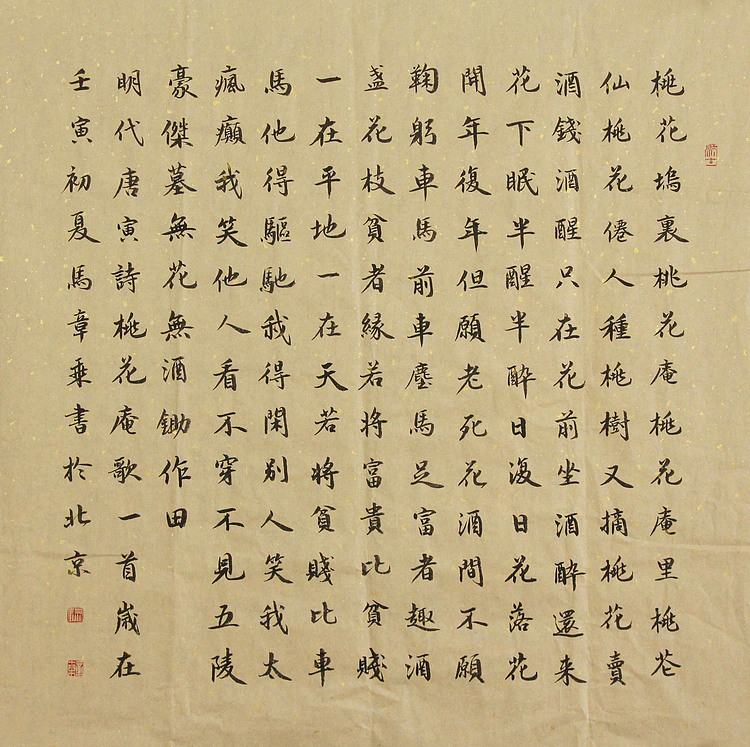 桃花塢裏桃花庵桃花庵里桃花
仙桃花僊人種桃樹又摘桃花賣
酒錢酒醒只在花前坐酒醉還来
花下眠半醒半醉日復日花落花
開年復年但願老死花酒間不願
鞠躬車馬前車塵馬足富者趣酒
盞花枝貧者緣若将富貴比貧賤
一在平地一在天若將貧賤比車
馬他得驅馳我得閑别人笑我太
瘋癲我笑他人看不穿不見五陵
豪傑墓無花無酒鋤作田
明代唐寅詩桃花庵歌一首歲在
壬寅初夏馬章乘書於北京